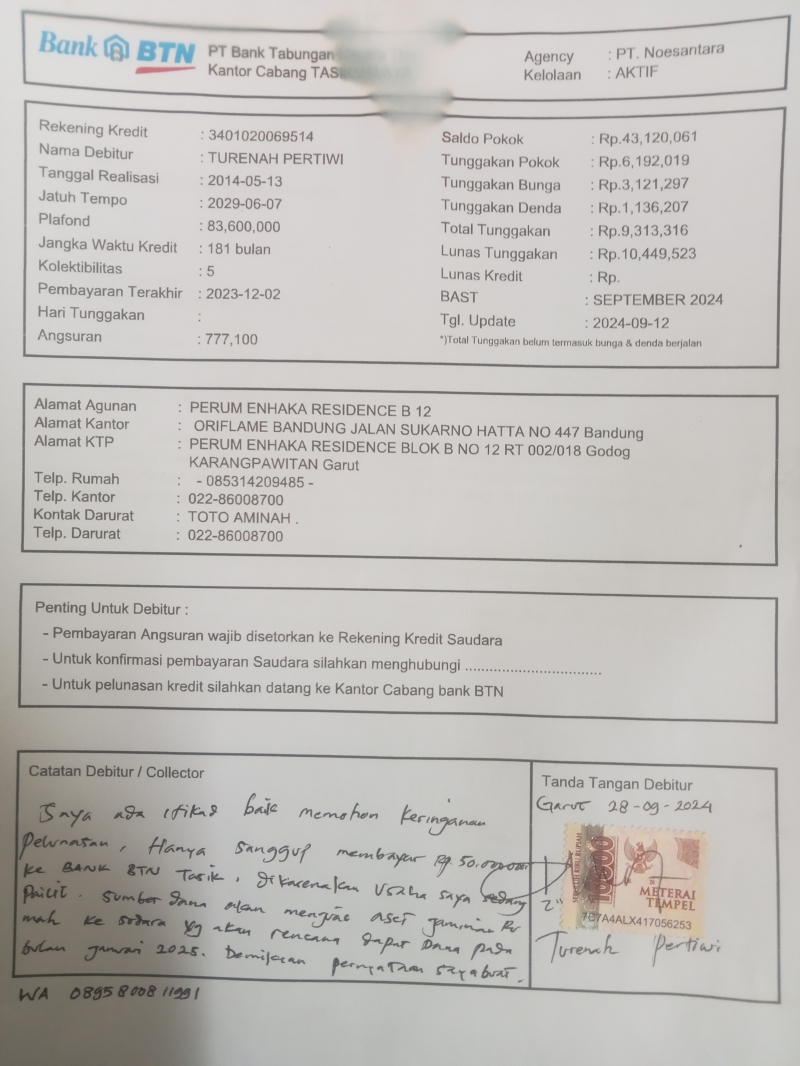 Bank BTN
PT Bank Tabungan
Kantor Cabang
Agency : PT. Noesantara
Kelolaan : AKTIF
Rekening Kredit : 3401020069514
Nama Debitur : TURENAH PERTIWI
Tanggal Realisasi : 2014-05-13
Jatuh Tempo : 2029-06-07
Plafond : 83,600,000
Jangka Waktu Kredit : 181 bulan
Kolektibilitas : 5
Pembayaran Terakhir : 2023-12-02
Hari Tunggakan :
Angsuran : 777,100
Saldo Pokok : Rp.43,120,061
Tunggakan Pokok : Rp.6,192,019
Tunggakan Bunga : Rp.3,121,297
Tunggakan Denda : Rp.1,136,207
Total Tunggakan : Rp.9,313,316
Lunas Tunggakan : Rp.10,449,523
Lunas Kredit : Rp.
BAST : SEPTEMBER 2024
Tgl. Update : 2024-09-12
*)Total Tunggakan belum termasuk bunga & denda berjalan
Alamat Agunan : PERUM ENHAKA RESIDENCE B 12
Alamat Kantor : ORIFLAME BANDUNG JALAN SUKARNO HATTA NO 447 Bandung
Alamat KTP : PERUM ENHAKA RESIDENCE BLOK B NO 12 RT 002/018 Godog
KARANGPAWITAN Garut
Telp. Rumah : - 085314209485 -
Telp. Kantor : 022-86008700
Kontak Darurat : TOTO AMINAH .
Telp. Darurat : 022-86008700
Penting Untuk Debitur :
- Pembayaran Angsuran wajib disetorkan ke Rekening Kredit Saudara
- Untuk konfirmasi pembayaran Saudara silahkan menghubungi ..................................
- Untuk pelunasan kredit silahkan datang ke Kantor Cabang bank BTN
Catatan Debitur / Collector
Saya ada itikad baik memohon keringanan
Pelunasan, Hanya sanggup membayar Rp. 50.000.000
ke BANK BTN Tasik, dikarenakan Usaha saya sedang
Pailit. Sumber dana akan menjual aset jaminan Ru
mah ke sodara yg akan rencana dapat Dana pada
bulan januari 2025. Demikian pernyataan saya buat.
Tanda Tangan Debitur
Garut 28-09-2024
10000
METERAI
TEMPEL
7C7A4ALX417056253
Turenah Pertiwi
WA 0895800811991